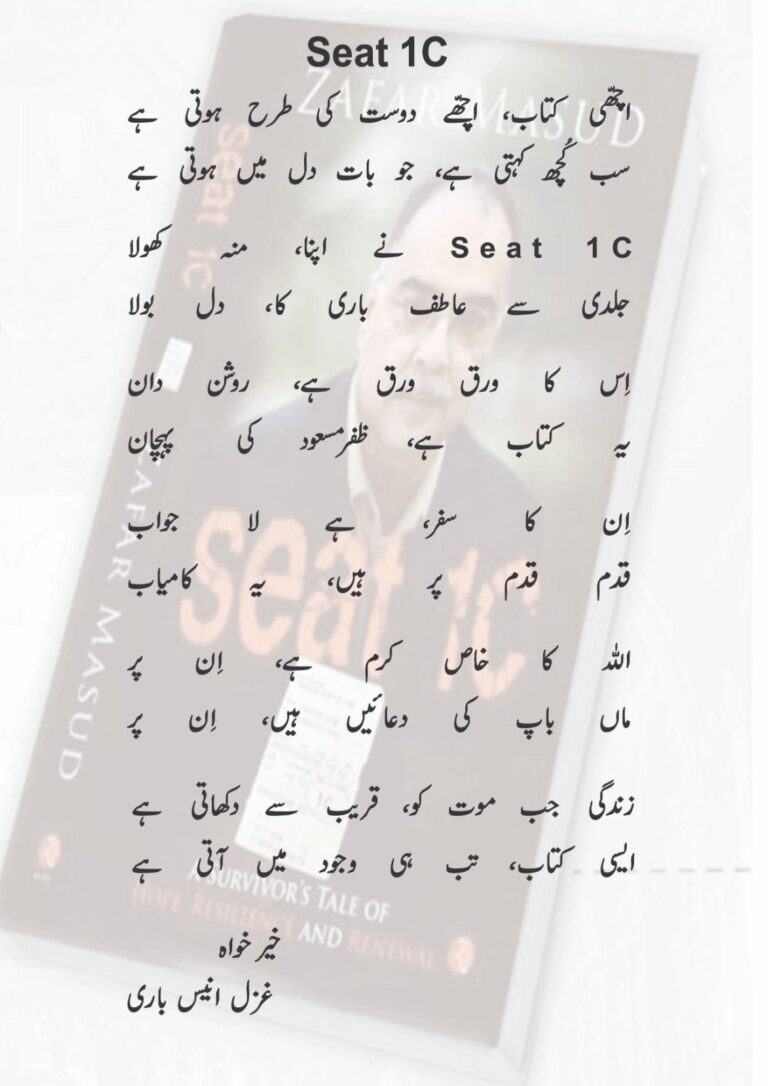 Seat 1C
اچھّی کتاب، اچھّے دوست کی طرح ہوتی ہے
سب کُچھ کہتی ہے، جو بات دل میں ہوتی ہے
Seat 1C نے اپنا، منہ کھولا
جلدی سے عاطف باری کا، دل بولا
اِس کا ورق ورق ہے، روشن دان
یہ کتاب ہے، ظفرمسعود کی پہچان
اِن کا سفر، ہے لا جواب
قدم قدم پر ہیں، یہ کامیاب
اللہ کا خاص کرم ہے، اِن پر
ماں باپ کی دعائیں ہیں، اِن پر
زندگی جب موت کو، قریب سے دکھاتی ہے
ایسی کتاب، تب ہی وجود میں آتی ہے
خیر خواہ
غزل انیس باری
ZAFAR MASUD
seat 1C
A SURVIVOR'S TALE OF
HOPE, RESILIENCE AND RENEWAL
seat 1C
ZAFAR MASUD